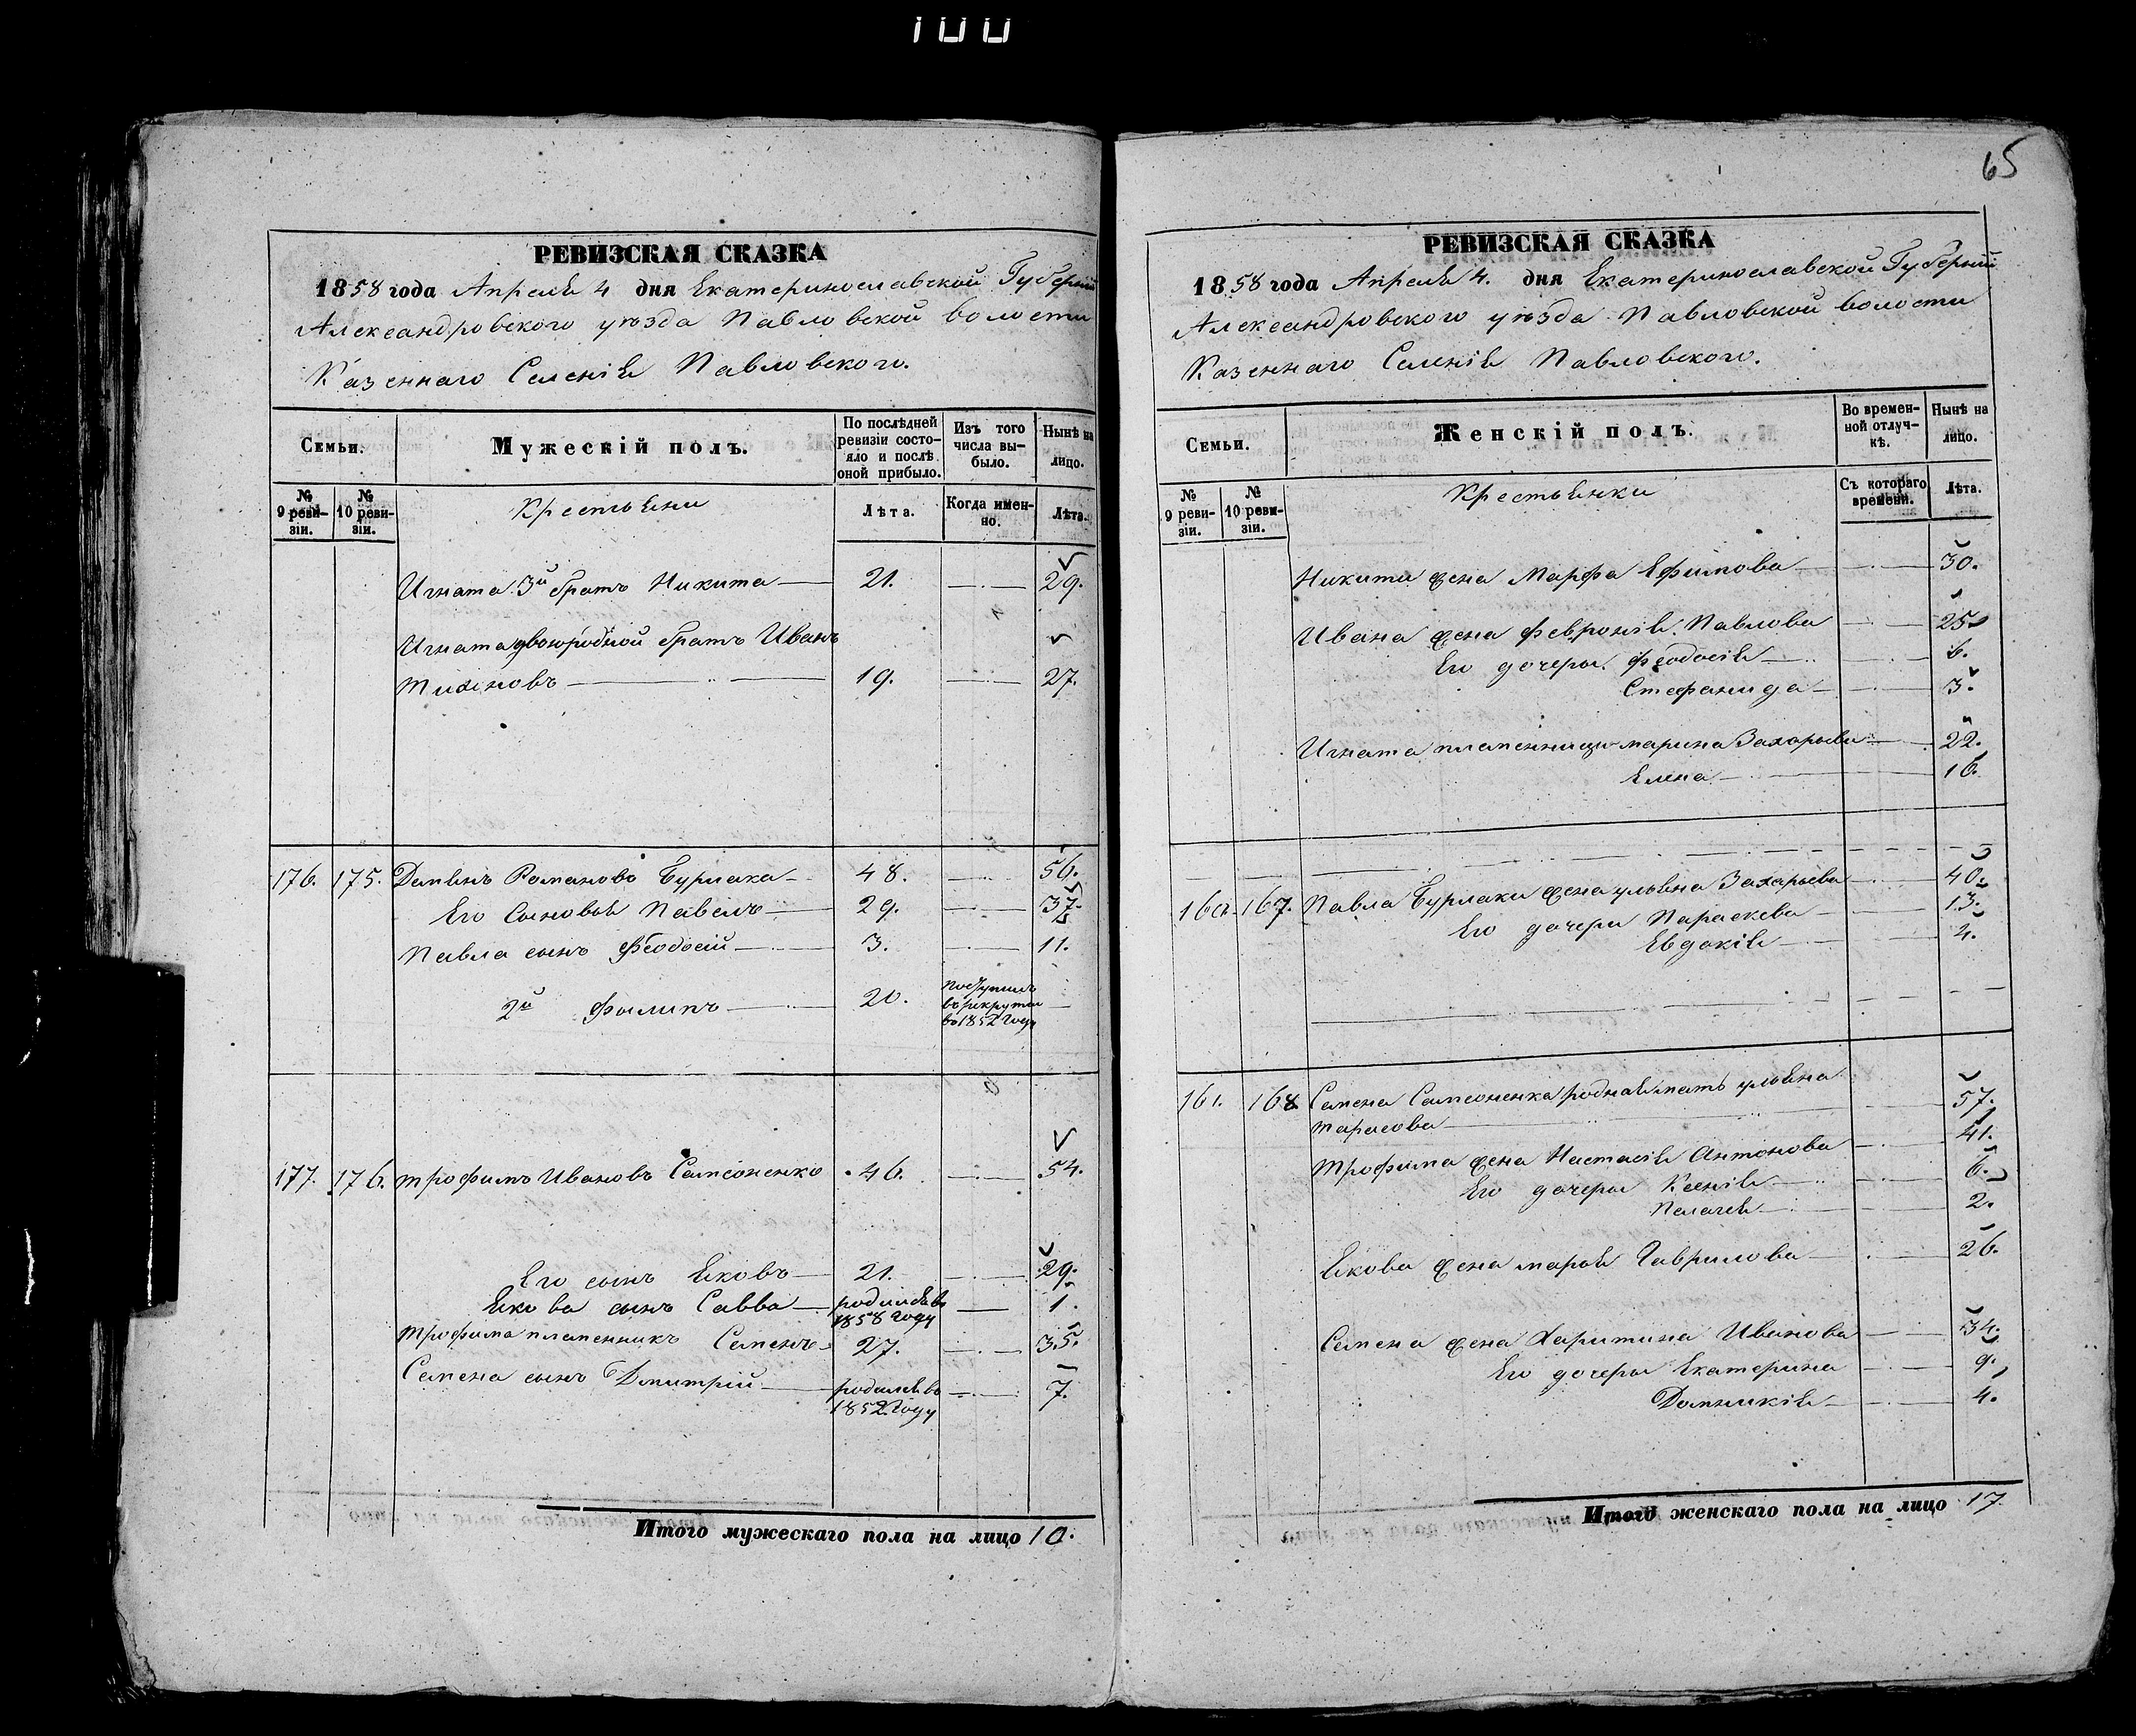 100
65
РЕВИЗСКАЯ СКАЗКА
1858 года Апреля 4 дня Екатеринославской Губерніи
Александровского уѣзда Павловской волости
Казеннаго Селенія Павловского.
Семьи.
Мужескій полъ.
По послѣдней ревизіи состояло и послѣ оной прибыло.
Изъ того числа выбыло.
Нынѣ на лицо.
№ 9 ревизіи.
№ 10 ревизіи.
Крестьяни
Лѣта.
Когда именно.
Лѣта.
Игната 3й братъ Никита 21. 29.
Игната двоюродной братъ Иванъ
Тихоновъ 19. 27.
176. 175. Демьянъ Романовъ Бурлака 48. 56.
Его сыновья Павелъ 29. 37.
Павла сынъ Феодосій 3. 11.
2й Филипъ 20. поступилъ в рекруты в 1852 году
177. 176. Трофимъ Ивановъ Самсоненко 46. 54.
Его сынъ Яковъ 21. 29.
Якова сынъ Савва родился в 1858 году 1.
Трофима племенникъ Семенъ 27. 35.
Семена сынъ Дмитрій родился в 1852 году 7.
Итого мужескаго пола на лицо 10.
РЕВИЗСКАЯ СКАЗКА
1858 года Апреля 4. дня Екатеринославской Губерніи
Александровского уѣзда Павловской волости
Казеннаго Селенія Павловского.
Семьи.
Женскій полъ.
Во временной отлучкѣ.
Нынѣ на лицо.
№ 9 ревизіи.
№ 10 ревизіи.
Крестьянки
Съ котораго времени.
Лѣта.
Никиты жена Марфа Ефимова 30.
Ивана жена Февронія Павлова 25
Его дочеры Феодосія 6.
Стефанида 3.
Игната племенницы Марина Захарьева 22.
Елена 16.
167. Павла Бурлаки жена Ульяна Захарьева 40.
Его дочеры Параскева 13.
Евдокія 4.
161. 168. Семена Самсоненка родная мать Ульяна
Тарасова 57.
Трофима жена Настасія Антонова 41.
Его дочеры Ксенія 6.
Пелагея 2.
Якова жена Марья Гаврилова 26.
Семена жена Харитина Иванова 34.
Его дочеры Екатерина 9.
Домникія 4.
Итого женскаго пола на лицо 17.